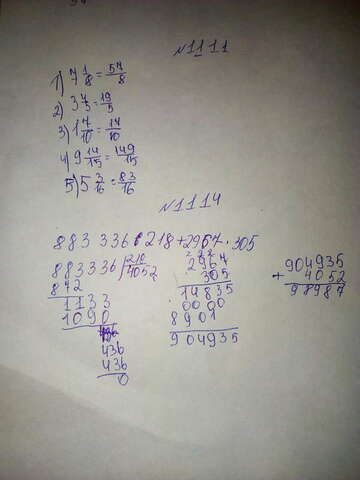 №1111
1) 7 1/8 = 57/8
2) 3 4/5 = 19/5
3) 1 7/10 = 17/10
4) 9 14/15 = 149/15
5) 5 3/16 = 83/16
№1114
883 336 : 218 + 2967 · 305
883336 | 218
872 4052
1133
1090
436
436
0
2967
305
14835
0000
8901
904935
904935
+ 4052
98987